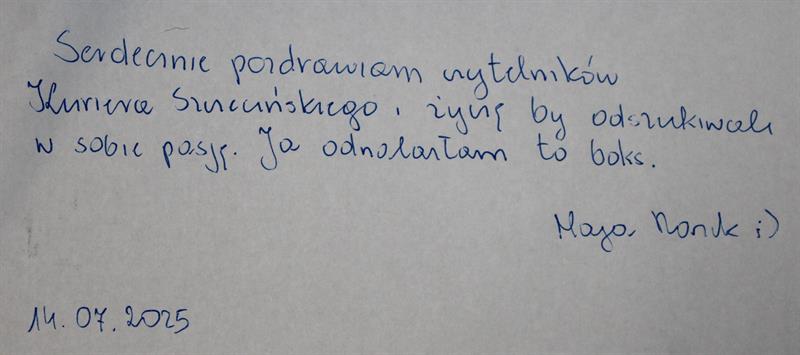 Serdecznie pozdrawiam czytelników
Kuriera Szczecińskiego i życzę by odszukiwali
w sobie pasję. Ja odnalazłam to boks.
Maja ;)
14.07.2025